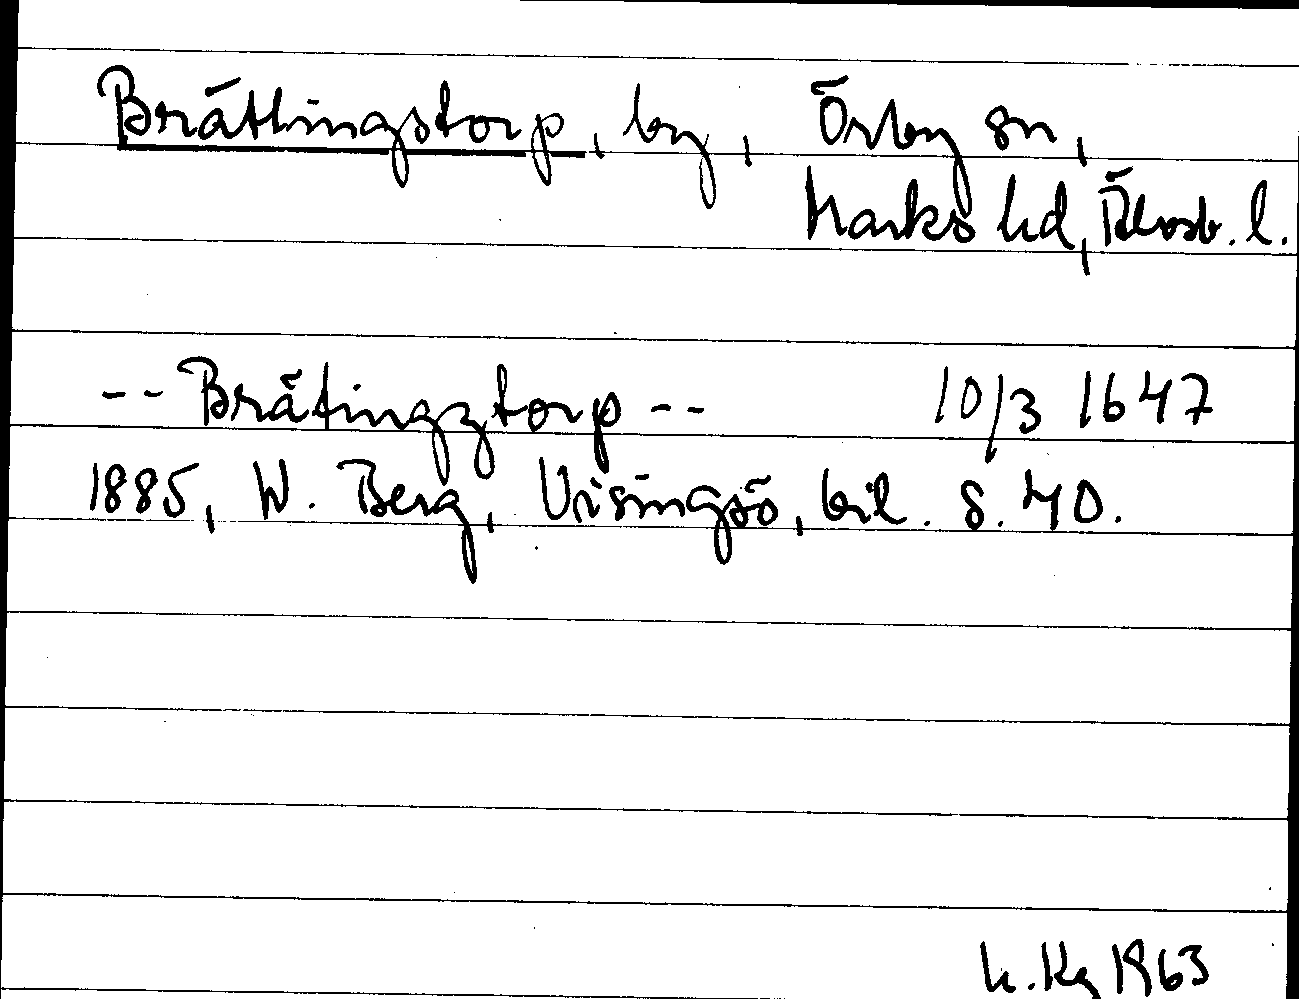 Brättingstorp, by, Örby sn,
Marks hd, Älvsb. l.
-- Brätingztorp -- 10/3 1647
1885, W. Berg, Visingsö, bil. s. 40.
1963